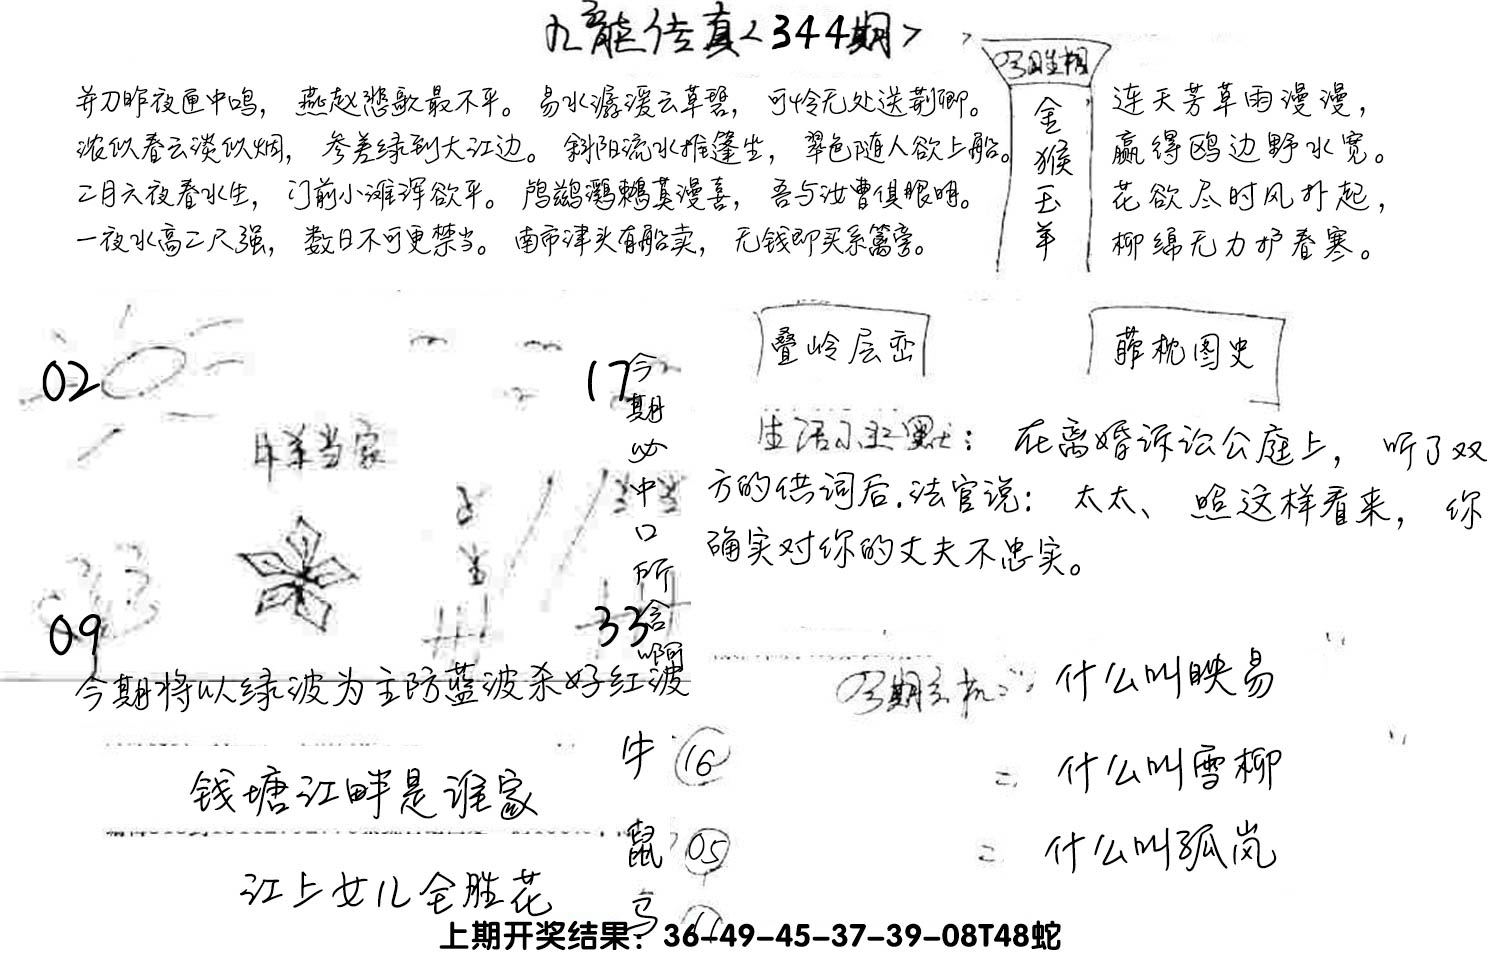 九龍传真<344期>
今期生相
金猴玉羊
并刀昨夜匣中鸣，燕赵悲歌最不平。易水潺湲云草碧，可怜无处送荆卿。
浓似春云淡似烟，参差绿到大江边。斜阳流水推篷坐，翠色随人欲上船。
二月六夜春水生，门前小滩浑欲平。鸬鹚鸂鶒莫漫喜，吾与汝曹俱眼明。
一夜水高二尺强，数日不可更禁当。南市津头有船卖，无钱即买系篱旁。
连天芳草雨漫漫，
赢得鸥边野水宽。
花欲尽时风扑起，
柳绵无力护春寒。
02
17
今期必中口所含啊
羊当家
09
33
今期将以绿波为主防蓝波杀好红波
叠岭层峦
藉枕图史
生活小幽默：在离婚诉讼公庭上，听了双
方的供词后.法官说：太太、照这样看来，你
确实对你的丈夫不忠实。
今期玄机：什么叫映易
= 什么叫雪柳
= 什么叫孤岚
牛 16
鼠 05
钱塘江畔是谁家
江上女儿全胜花
上期开奖结果：36-49-45-37-39-08T48蛇